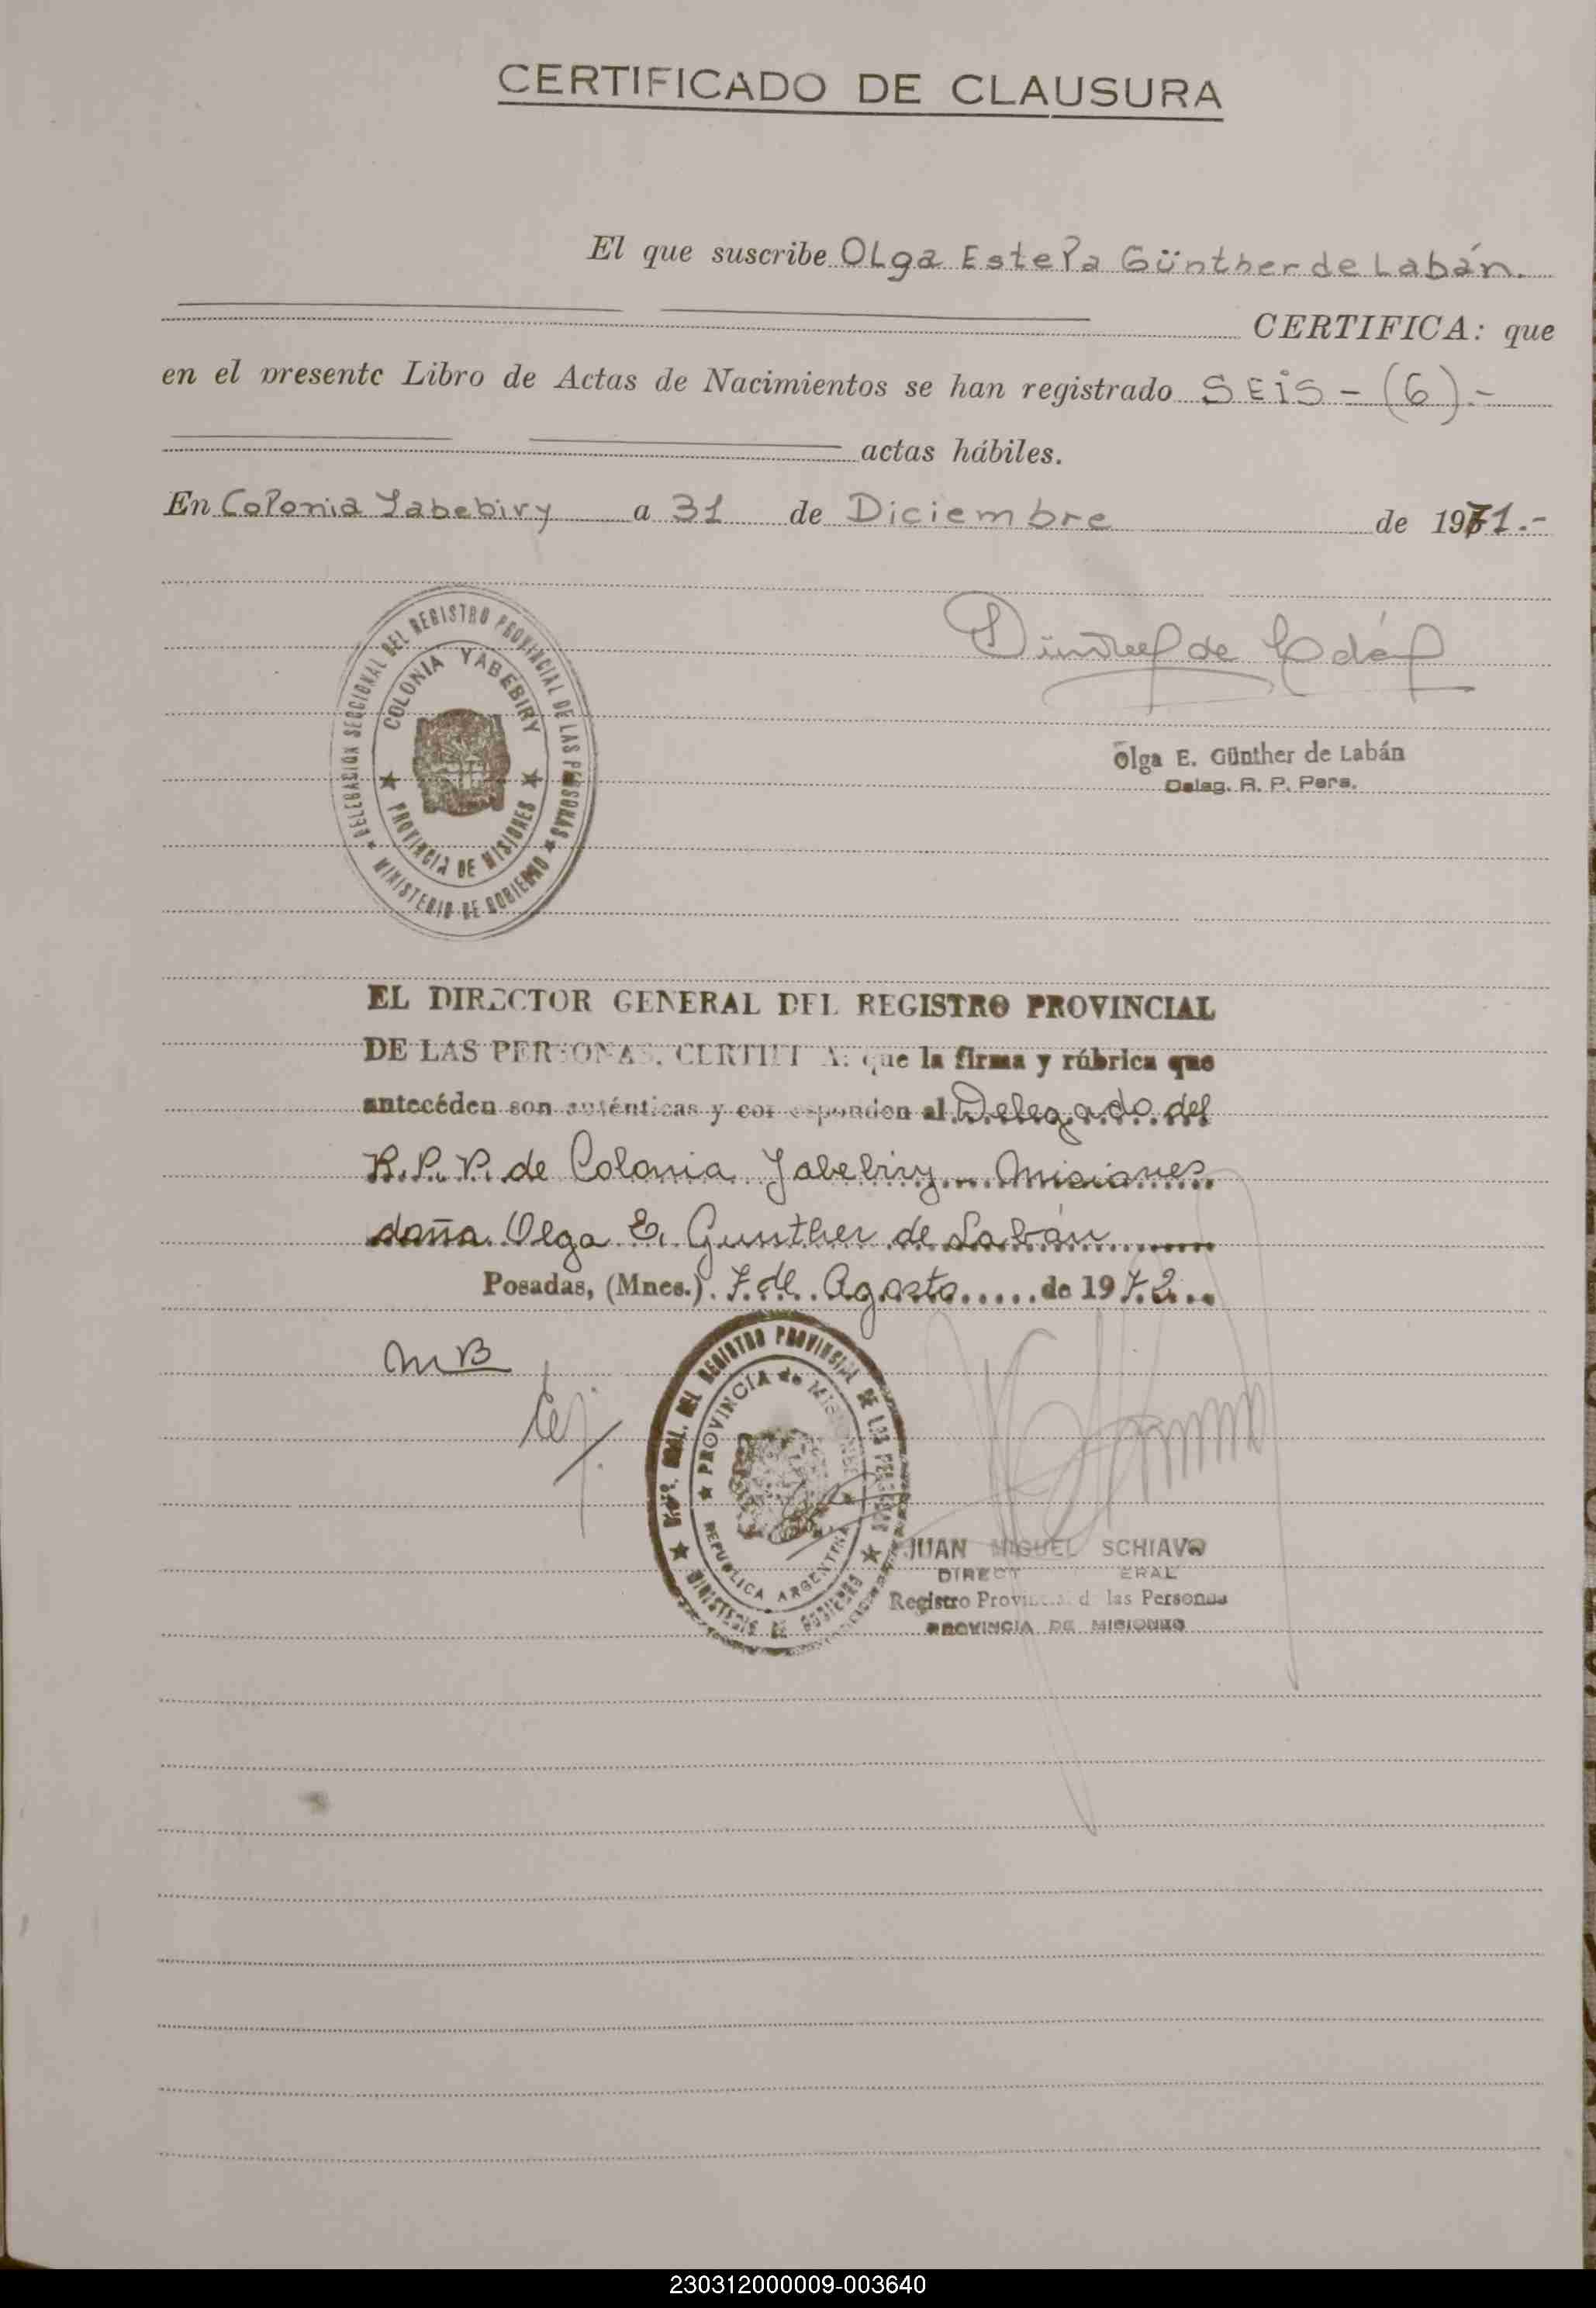 CERTIFICADO DE CLAUSURA
El que suscribe OLga Estela Günther de Labán.
CERTIFICA: que
en el presente Libro de Actas de Nacimientos se han registrado SEiS - (6).-
actas hábiles.
En Colonia Yabebiry a 31 de Diciembre de 1971.-
DELEGACION SECCIONAL DEL REGISTRO PROVINCIAL DE LAS PERSONAS
COLONIA YABEBIRY
PROVINCIA DE MISIONES
MINISTERIO DE GOBIERNO
Olga E. Günther de Labán
Deleg. R. P. Pers.
EL DIRECTOR GENERAL DEL REGISTRO PROVINCIAL
DE LAS PERSONAS, CERTIFICA: que la firma y rúbrica que
antecéden son auténticas y corresponden al Delegado del
R.P.P. de Colonia Yabebiry - Misiones
doña Olga E. Gunther de Labán
Posadas, (Mnes.) 7 de Agosto de 1972
MB
GRAL. DEL REGISTRO PROVINCIAL DE LAS PERSONAS
PROVINCIA de MISIONES
REPUBLICA ARGENTINA
MINISTERIO DE GOBIERNO
JUAN MIGUEL SCHIAVO
DIRECT ERAL
Registro Provincial d las Personas
PROVINCIA DE MISIONES
230312000009-003640